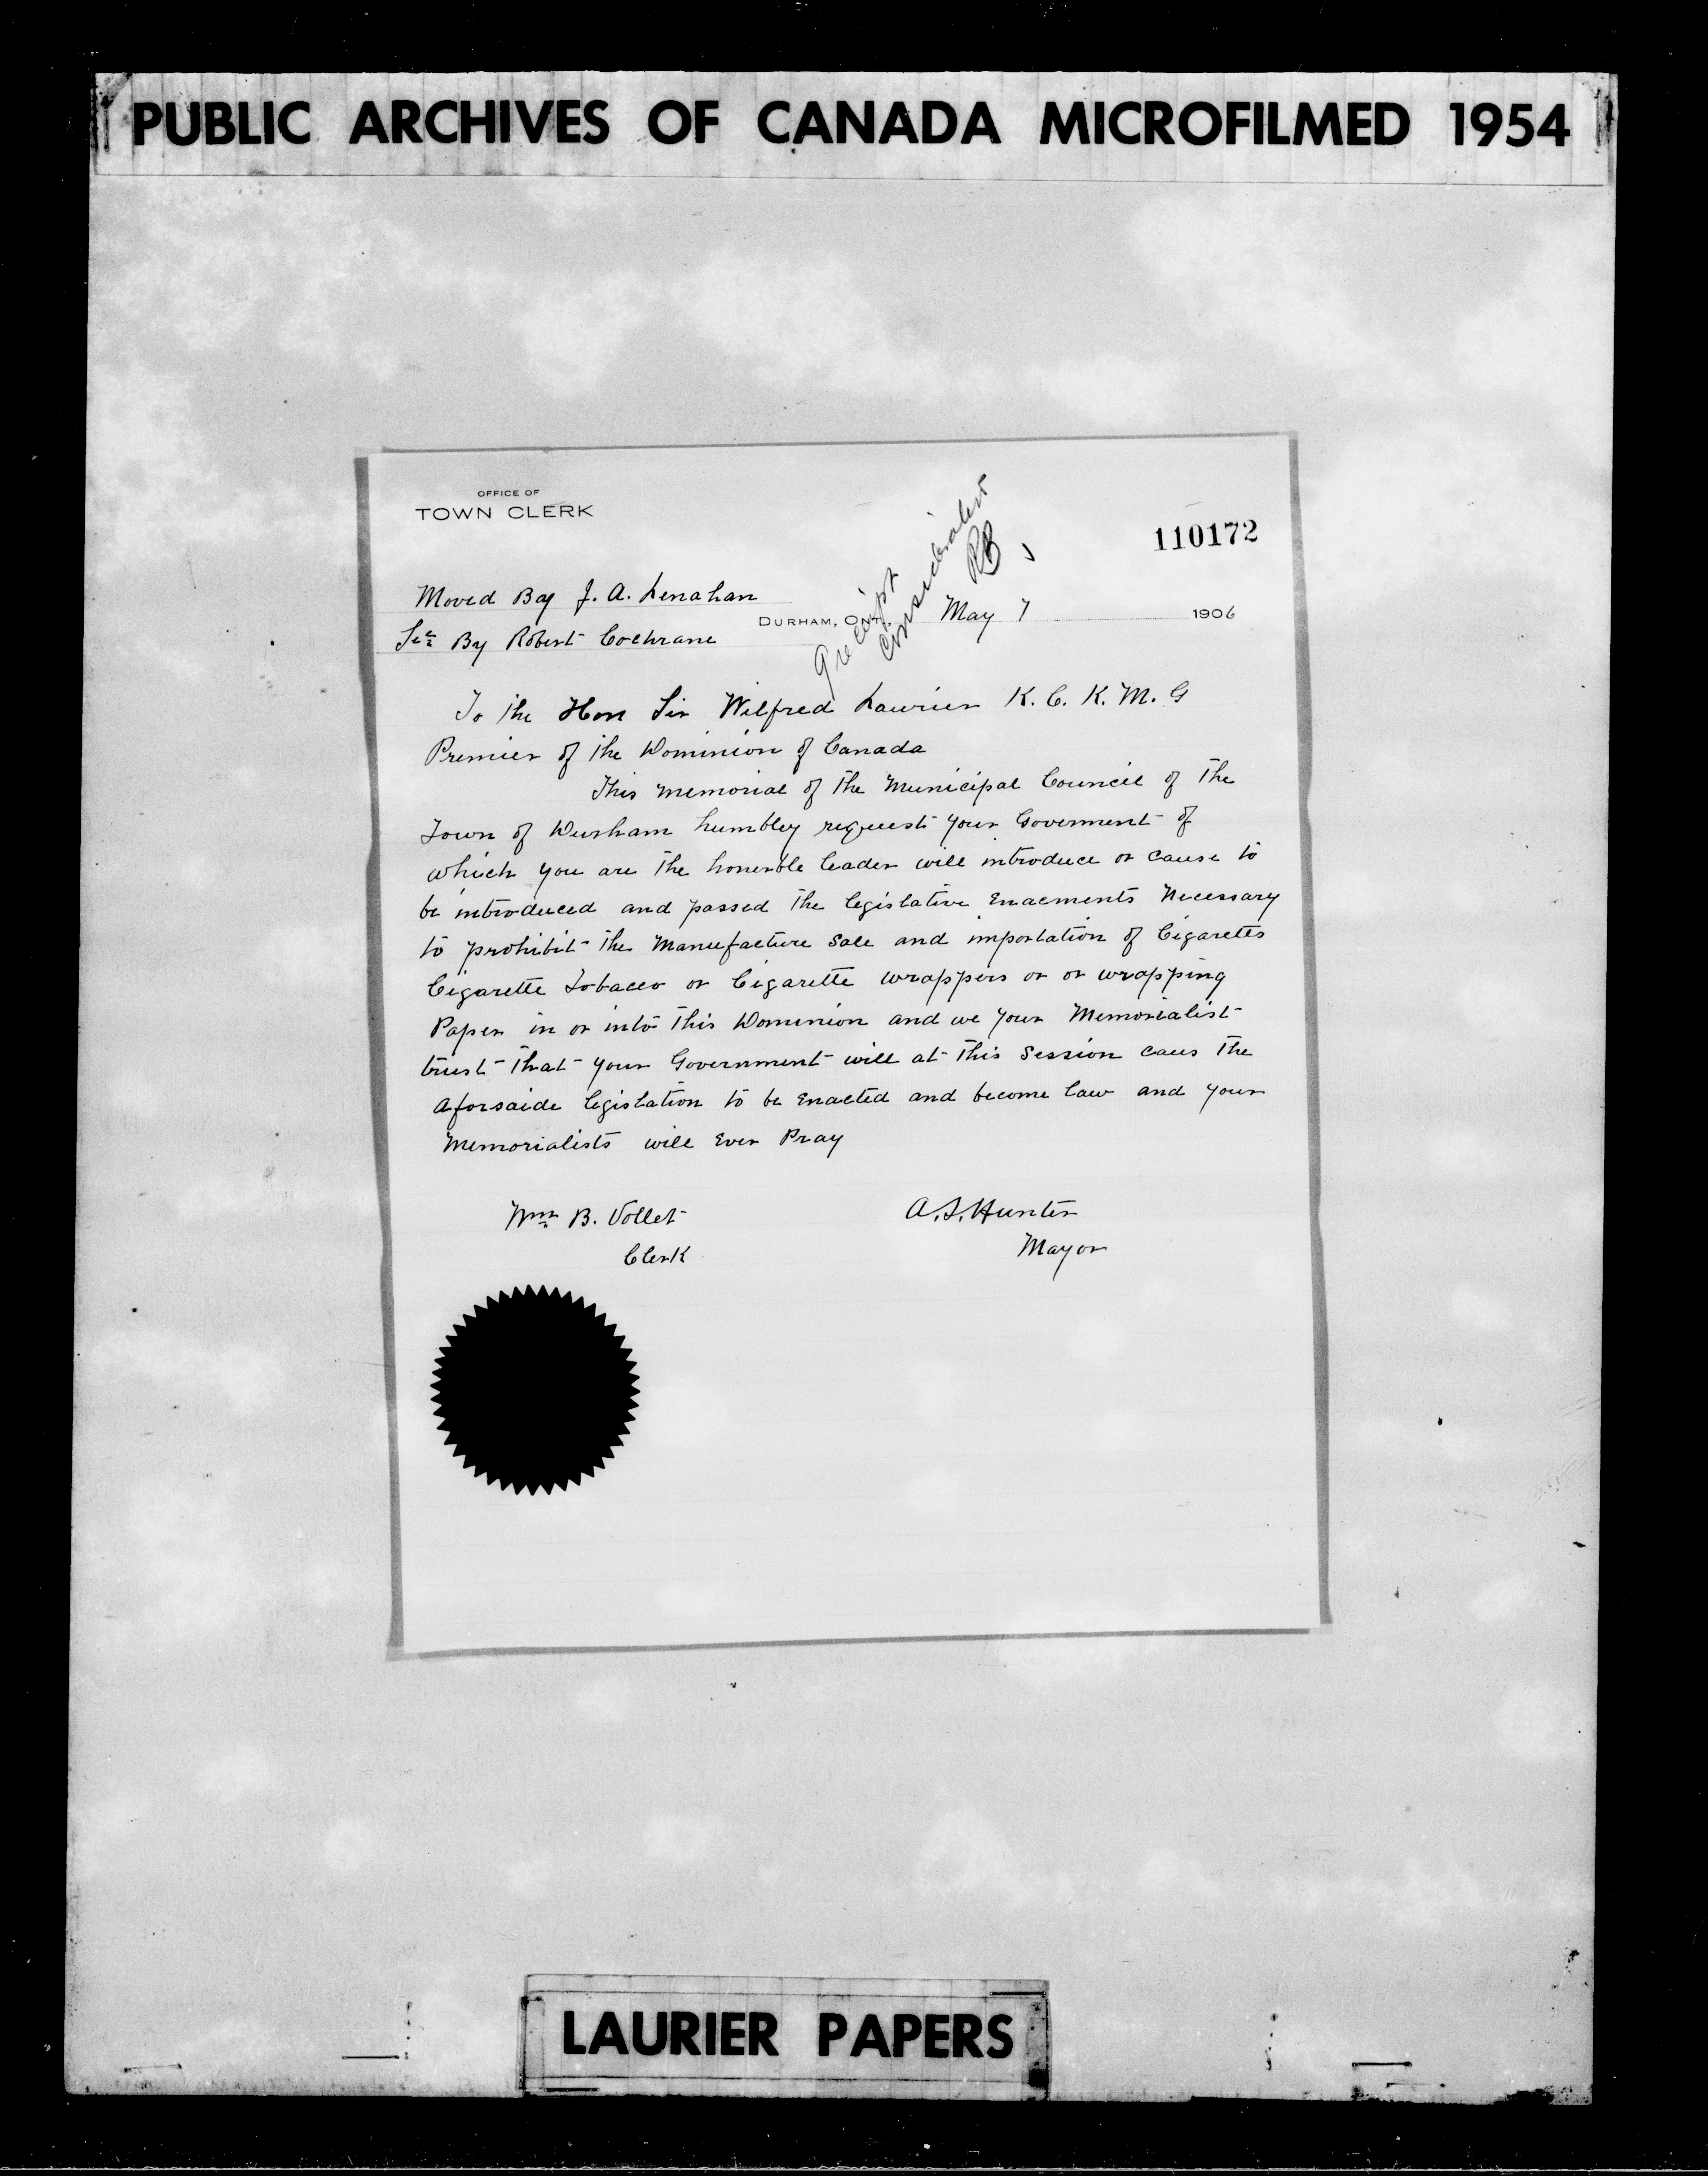 PUBLIC ARCHIVES OF CANADA MICROFILMED 1954
OFFICE OF
TOWN CLERK
110172
receipt
consideration
RB
Moved By J. A. Lenahan
Sec By Robert Cochrane
DURHAM, ONT. May 7 1906
To the Hon Sir Wilfred Laurier K. C. K. M. G
Premier of the Dominion of Canada
This Memorial of the Municipal Council of the
Town of Durham humbley request your Goverment of
which you are the honerble leader will introduce or cause to
be introduced and passed the legislative Enacments Necessary
to prohibit the Manufacture Sale and importation of Cigarettes
Cigarette Tobacco or Cigarette wrappers or or wrapping
Paper in or into this Dominion and we your Memorialist
trust that your Government will at this Session caus the
aforsaide legislation to be Enacted and become law and your
Memorialists will Ever Pray
Wm B. Vollet
A. S. Hunter
Clerk
Mayor
LAURIER PAPERS